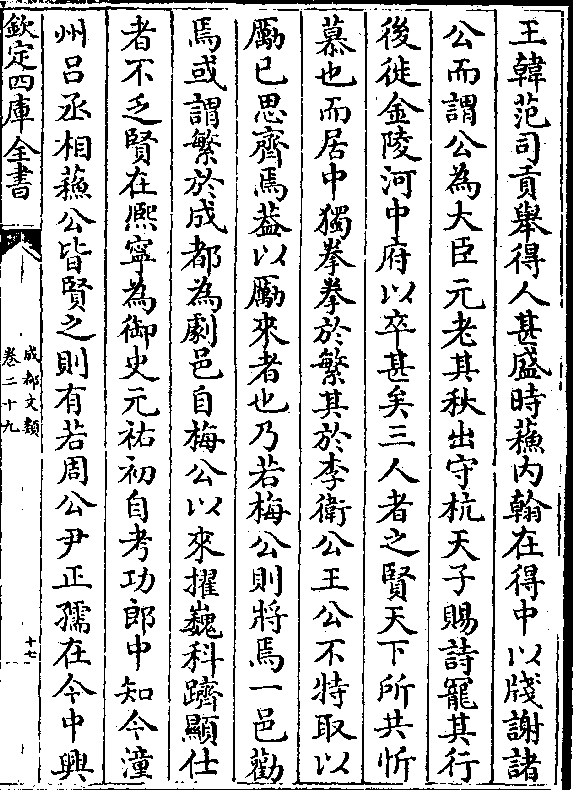 王韓范司貢舉得人甚盛時蘓内翰在得中以牋謝諸
公而謂公為大臣元老其秋出守杭天子賜詩寵其行
後徙金陵河中府以卒甚矣三人者之賢天下所共忻
慕也而居中獨拳拳於繁其於李衛公王公不特取以
勵已思齊焉葢以勵來者也乃若梅公則將焉一邑勸
焉或謂繁於成都為劇邑自梅公以來擢巍科躋顯仕
者不乏賢在熈寧為御史元祐初自考功郎中知今潼
州吕丞相蘓公皆賢之則有若周公尹正孺在今中興
欽定四庫全書
成都文類
卷二十九
十七